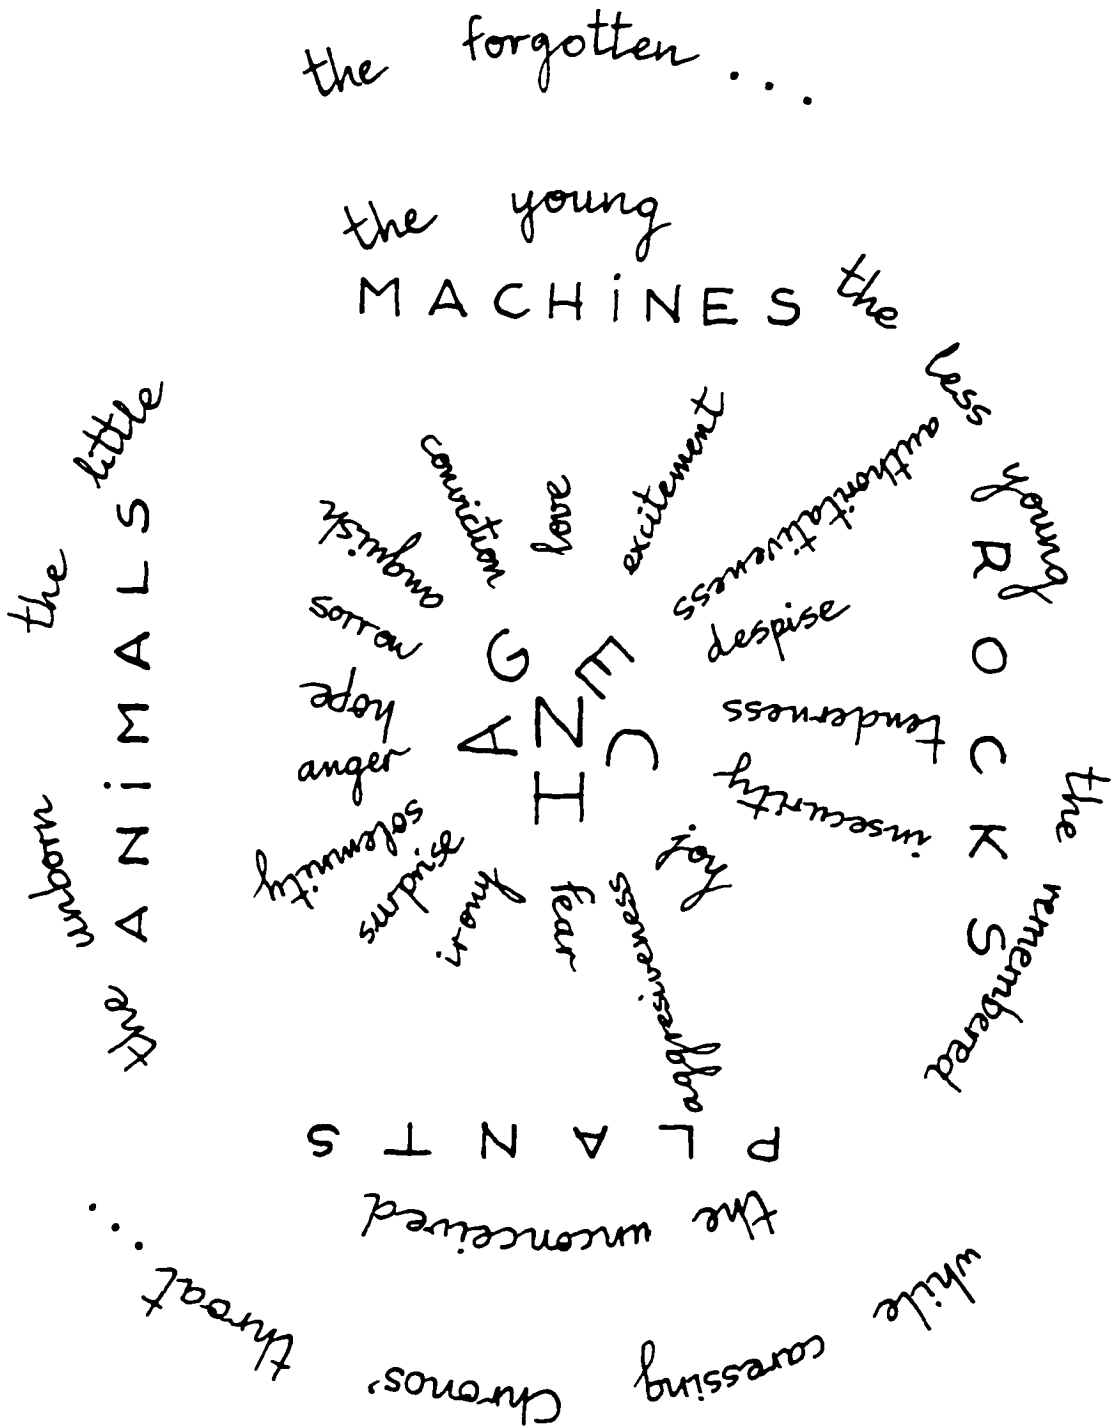 the forgotten...
the young
the less young
the remembered
while caressing Chronos' throat...
the unconceived
the unborn
the little
MACHiNES
ROCKS
PLANTS
ANiMALS
love
excitement
authoritativeness
despise
tenderness
insecurity
joy
aggressiveness
fear
irony
surprise
solemnity
anger
hope
sorrow
anguish
conviction
CHANGE